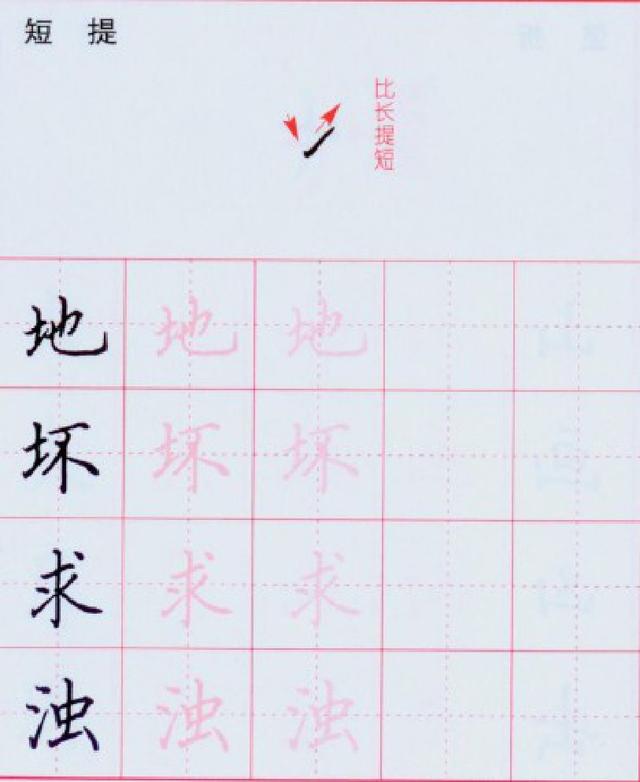 短 提
比长提短
地 地 地
坏 坏 坏
求 求 求
浊 浊 浊